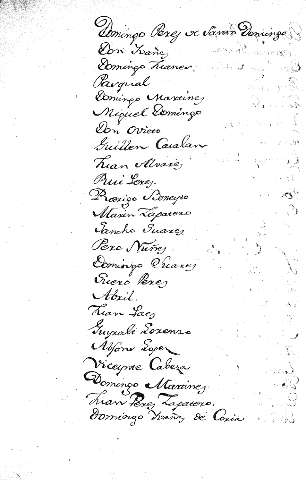 Domingo Peres de Santo Domingo
Don Ivañe
Domingo Iuanes
Pasqual
Domingo Martines
Miguel Domingo
Don Ovieto
Guillen Catalan
Iuan Alvares
Rui Peres
Rodrigo
Marin Zapatero
Sancho Suares
Pero Nuñes
Domingo Iuanes
Suero Peres
Abril
Iuan
Lorenzo
Alfonso Lopez
Viceynte Cabeza
Domingo Martines
Iuan Peres Zapatero
Domingo Ivañes de Coria